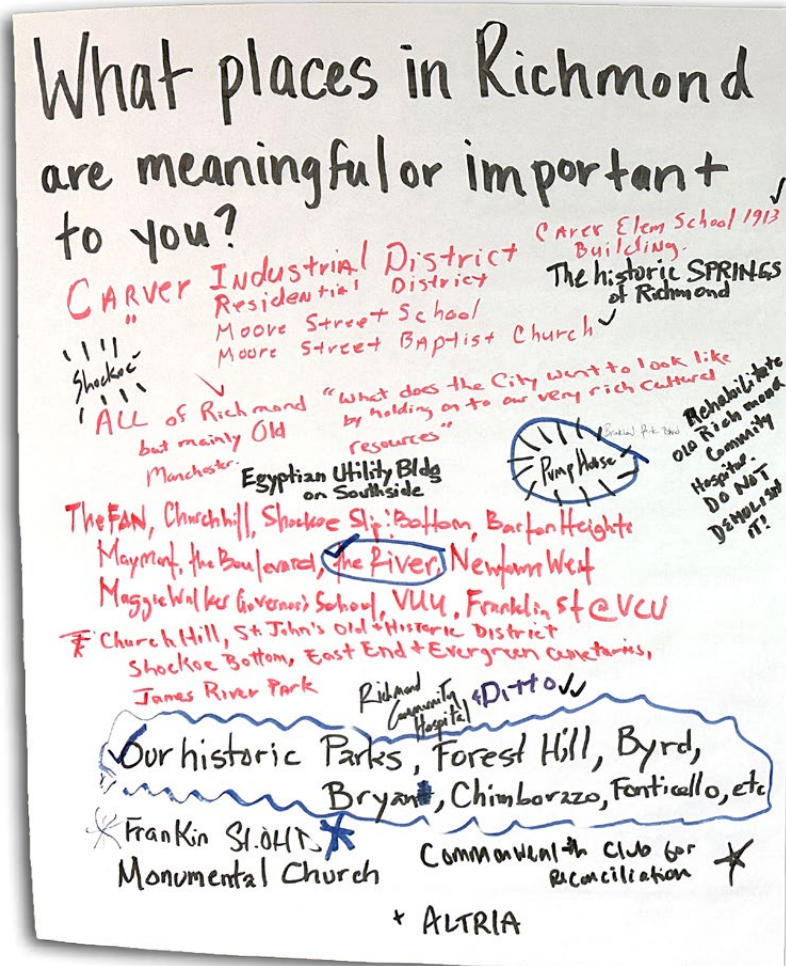 What places in Richmond
are meaningful or important
to you?
CARVER Industrial District
" Residential District
Moore Street School
Moore Street BAptist Church ✓
CArver Elem School 1913 ✓
Building.
The historic SPRINGS
of Richmond
Shockoe
ALL of Richmond
but mainly Old
Manchester.
"What does the City want to look like
by holding on to our very rich cultural
resources"
Egyptian Utility Bldg
on Southside
Pump House
Rehabilitate
Old Richmond
Community
Hospital.
DO NOT
DEMOLISH
IT!
The FAN, Churchhill, Shockoe Slip: Bottom, Barton Heights
Maymont, the Boulevard, the River, Newtown West
Maggie Walker Governor's School, VUU, Franklin St @ VCU
Church Hill, St. John's Old + Historic District
Shockoe Bottom, East End + Evergreen cemeteries,
James River Park
Richmond
Community
Hospital
Ditto ✓✓
Our historic Parks, Forest Hill, Byrd,
Bryan, Chimborazo, Fonticello, etc
Frankin St. OHD
Monumental Church
Commonwealth Club for
Reconciliation
+ ALTRIA